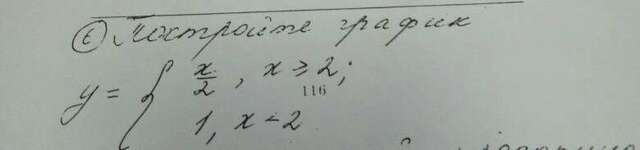 6 Постройте график
y = { x/2 , x ≥ 2;
116
1, x - 2